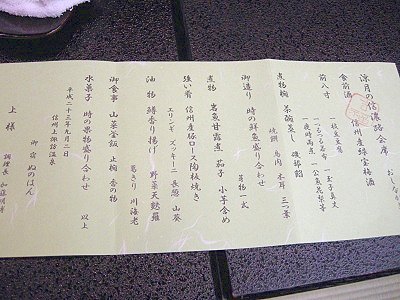 涼月の信濃路会席
おしながき
食前酒 信州産緑宝梅酒
前八寸
一枝豆豆腐 一玉子真丈
煮物椀 茶碗蒸し 磯部餡
焼餅 鶏肉 木耳 三つ葉
御造り 時の鮮魚盛り合わせ
芽物一式
煮物 岩魚甘露煮 茄子 小芋含め
強い肴 信州産豚ロース陶板焼き
エリンギ ズッキーニ 長葱 山葵
油物 鱚香り揚げ 野菜天麩羅
葛きり 川海老
御食事 山菜釜飯 止椀 香の物
水菓子 時の果物盛り合わせ 以上
平成二十三年九月二日
信州上諏訪温泉
御宿 ぬのはん
調理長
上様